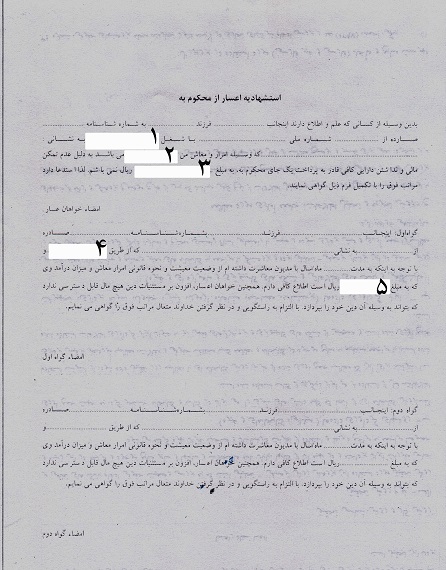 استشهادیه اعسار از محکوم به
بدین وسیله از کسانی که علم و اطلاع دارند اینجانب ........ فرزند ........ به شماره شناسنامه ........
صادره از ........ شماره ملی ........ با شغل ۱ به نشانی
........ که وسیله امرار و معاش من ۲ می باشد به دلیل عدم تمکن
مالی و نداشتن دارایی کافی قادر به پرداخت یک جای محکوم به، به مبلغ ۳ ریال نمی باشم. لذا استدعا دارد
مراتب فوق را با تکمیل فرم ذیل گواهی نمایند.
امضاء خواهان اعسار
گواه اول: اینجانب ........ فرزند ........ بشماره شناسنامه ........ صادره
از ........ به نشانی ........ که از طریق ۴ و
با توجه به اینکه به مدت ........ ماه/سال با مدیون معاشرت داشته ام از وضعیت معیشت و نحوه قانونی امرار معاش و میزان درآمد وی
که به مبلغ ۵ ریال است اطلاع کافی دارم. همچنین خواهان اعسار، افزون بر مستثنیات دین هیچ مال قابل دسترسی ندارد
که بتواند به وسیله آن دین خود را بپردازد. با التزام به راستگویی و در نظر گرفتن خداوند متعال مراتب فوق را گواهی می نمایم.
امضاء گواه اول
گواه دوم: اینجانب ........ فرزند ........ بشماره شناسنامه ........ صادره
از ........ به نشانی ........ که از طریق ........ و
با توجه به اینکه به مدت ........ ماه/سال با مدیون معاشرت داشته ام از وضعیت معیشت و نحوه قانونی امرار معاش و میزان درآمد وی
که به مبلغ ........ ریال است اطلاع کافی دارم. همچنین خواهان اعسار، افزون بر مستثنیات دین هیچ مال قابل دسترسی ندارد
که بتواند به وسیله آن دین خود را بپردازد. با التزام به راستگویی و در نظر گرفتن خداوند متعال مراتب فوق را گواهی می نمایم.
امضاء گواه دوم